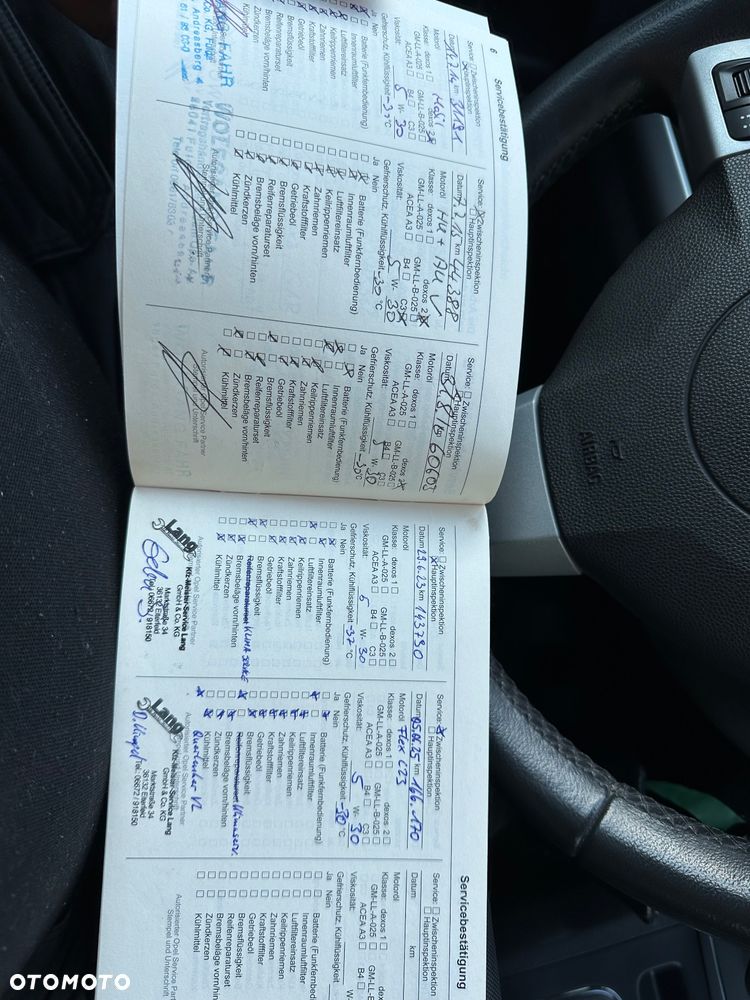 6
Servicebestätigung
Service: Zwischeninspektion
Hauptinspektion
km 30191
Motoröl Mobil
Klasse: dexos 1 dexos 2
GM-LL-A-025 GM-LL-B-025
ACEA A3 B4 C3
Viskosität: 5 W- 30
Gefrierschutz, Kühlflüssigkeit °C
Ja Nein
Batterie (Funkfernbedienung)
Innenraumluftfilter
Luftfiltereinsatz
Keilrippenriemen
Zahnriemen
Kraftstofffilter
Getriebeöl
Bremsflüssigkeit
Reifenreparaturset
Bremsbeläge vorn/hinten
Zündkerzen
Kühlmittel
FAHR
Andreasberg 4
Service: Zwischeninspektion
Hauptinspektion
Datum km 44388
Motoröl
Klasse: dexos 1 dexos 2
GM-LL-A-025 GM-LL-B-025
ACEA A3 B4 C3
Viskosität: 5 W- 30
Gefrierschutz, Kühlflüssigkeit -30 °C
Ja Nein
Batterie (Funkfernbedienung)
Innenraumluftfilter
Luftfiltereinsatz
Keilrippenriemen
Zahnriemen
Kraftstofffilter
Getriebeöl
Bremsflüssigkeit
Reifenreparaturset
Bremsbeläge vorn/hinten
Zündkerzen
Kühlmittel
Service: Zwischeninspektion
Hauptinspektion
Datum km 60605
Motoröl
Klasse: dexos 1 dexos 2
GM-LL-A-025 GM-LL-B-025
ACEA A3 B4 C3
Viskosität: 5 W- 30
Gefrierschutz, Kühlflüssigkeit -30 °C
Ja Nein
Batterie (Funkfernbedienung)
Innenraumluftfilter
Luftfiltereinsatz
Keilrippenriemen
Zahnriemen
Kraftstofffilter
Getriebeöl
Bremsflüssigkeit
Reifenreparaturset
Bremsbeläge vorn/hinten
Zündkerzen
Kühlmittel
Autorisierter Opel Service Partner
Stempel und Unterschrift
Servicebestätigung
Service: Zwischeninspektion
Hauptinspektion
Datum 29.6.23 km 143790
Motoröl
Klasse: dexos 1 dexos 2
GM-LL-A-025 GM-LL-B-025
ACEA A3 B4 C3
Viskosität: 5 W- 30
Gefrierschutz, Kühlflüssigkeit -37 °C
Ja Nein
Batterie (Funkfernbedienung)
Innenraumluftfilter
Luftfiltereinsatz
Keilrippenriemen
Zahnriemen
Kraftstofffilter
Getriebeöl
Bremsflüssigkeit
Reifenreparaturset KLIMA SERVICE
Bremsbeläge vorn/hinten
Zündkerzen
Kühlmittel
Autorisierter Opel Service Partner
Lang
Kfz-Meister-Service Lang
GmbH & Co. KG
Marktstraße 34
36132 Eiterfeld
Tel. 06672 / 918150
Service: Zwischeninspektion
Hauptinspektion
Datum km 166.170
Motoröl Flex C23
Klasse: dexos 1 dexos 2
GM-LL-A-025 GM-LL-B-025
ACEA A3 B4 C3
Viskosität: 5 W- 30
Gefrierschutz, Kühlflüssigkeit -30 °C
Ja Nein
Batterie (Funkfernbedienung)
Innenraumluftfilter
Luftfiltereinsatz
Keilrippenriemen
Zahnriemen
Kraftstofffilter
Getriebeöl
Bremsflüssigkeit
Reifenreparaturset Klimaserv.
Bremsbeläge vorn/hinten
Zündkerzen
Kühlmittel
Querlenker VL
Lang
Kfz-Meister-Service Lang
GmbH & Co. KG
Marktstraße 34
36132 Eiterfeld
Tel. 06672 / 918150
Service: Zwischeninspektion
Hauptinspektion
Datum km
Motoröl
Klasse: dexos 1
GM-LL-A-025
ACEA A3
Viskosität:
Gefrierschutz, Kühlflüssigkeit
Ja Nein
Batterie (Funkfernbedienung)
Innenraumluftfilter
Luftfiltereinsatz
Keilrippenriemen
Zahnriemen
Kraftstofffilter
Getriebeöl
Bremsflüssigkeit
Reifenreparaturset
Bremsbeläge vorn/hinten
Zündkerzen
Kühlmittel
Autorisierter Opel Service Partner
Stempel und Unterschrift
AIRBAG
OTOMOTO